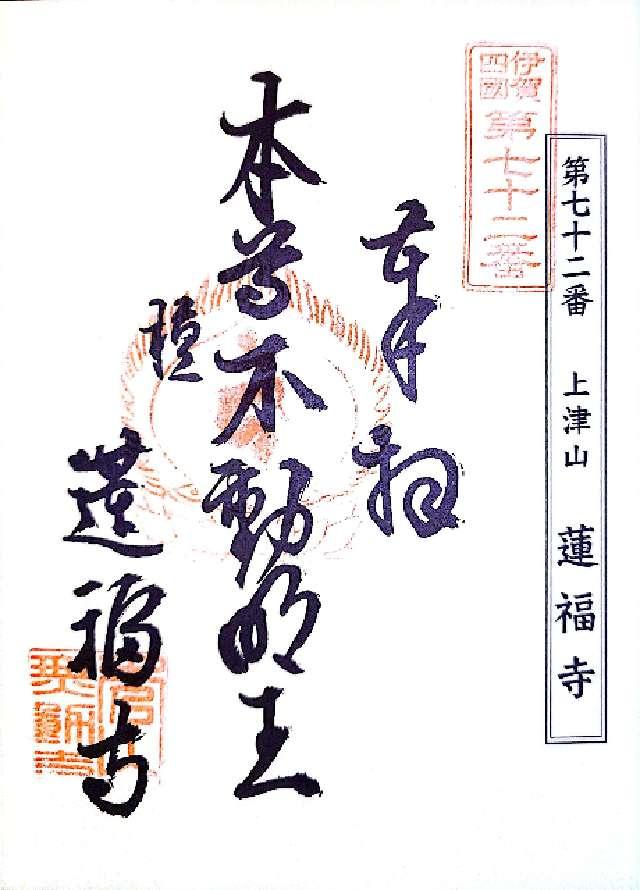 第七十二番 上津山 蓮福寺
伊賀
四國
第七十二番
奉拝
本尊不動明王
蓮福寺